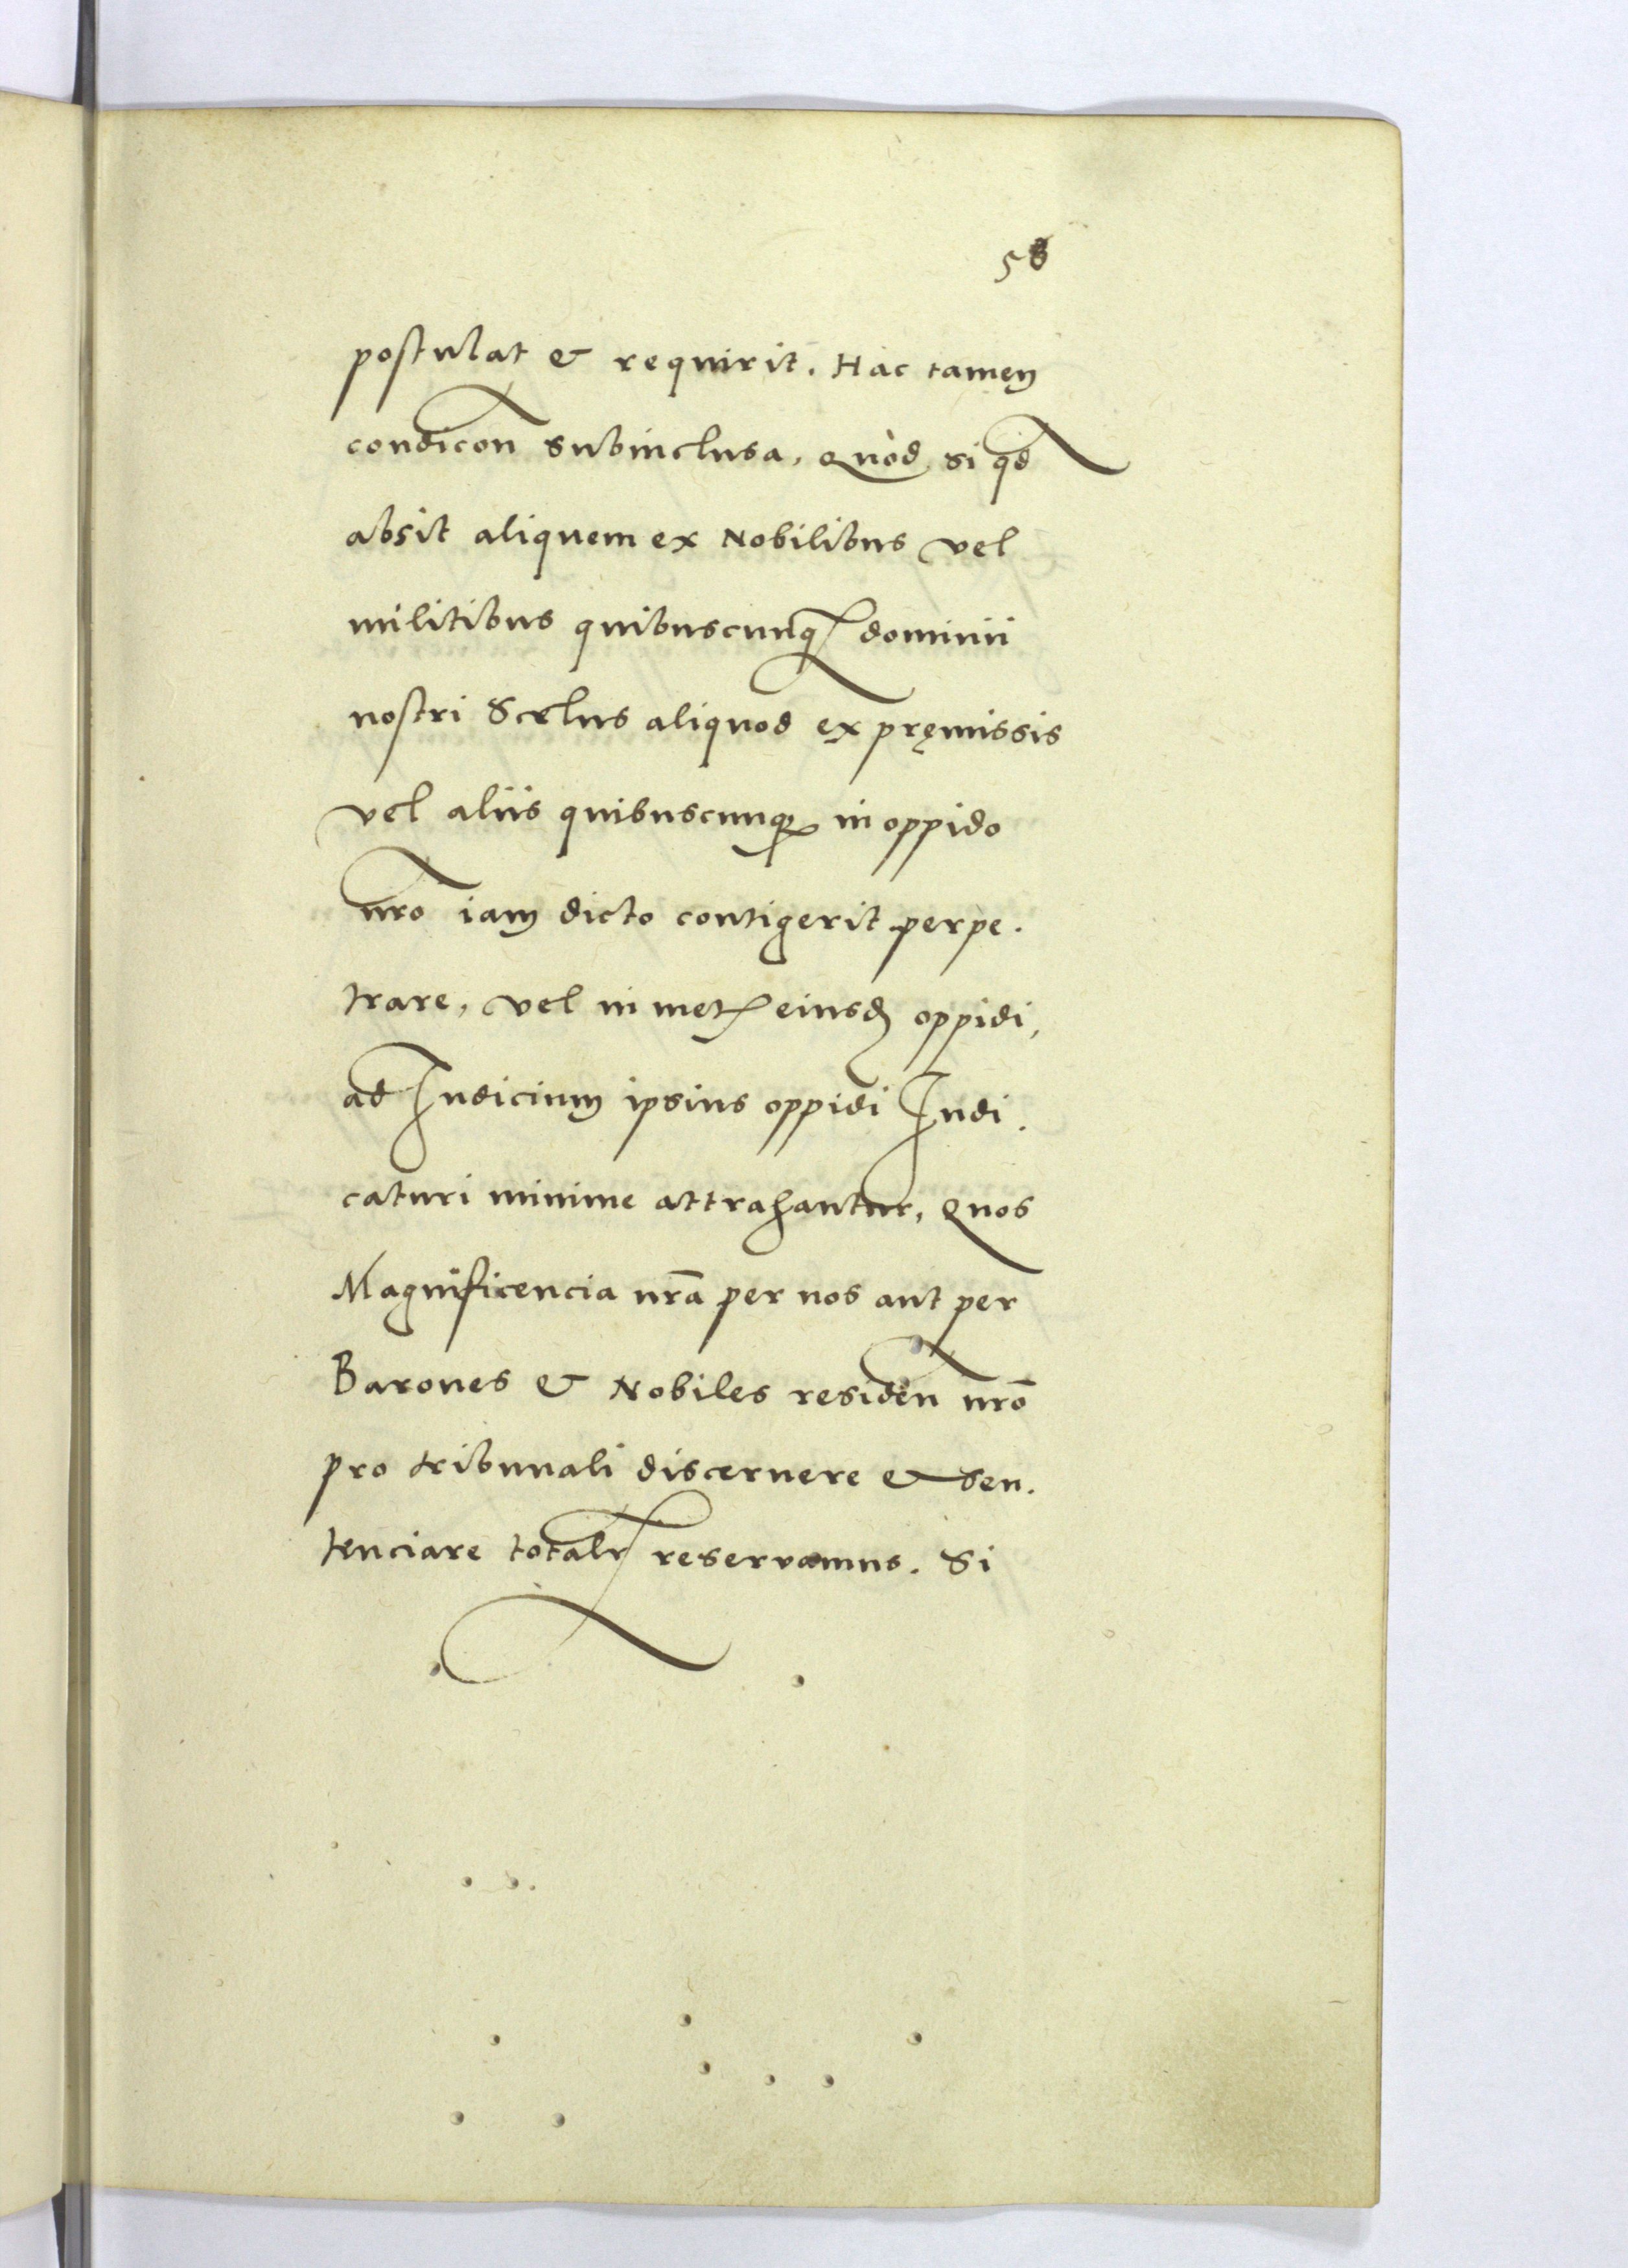 58
postulat & requirit. Hac tamen
condicon̄ subinclusa, Quòd si qd̄
absit aliquem ex Nobilibus vel
militibus quibuscunqꝫ dominii
nostri Scelus aliquod ex pręmissis
vel aliis quibuscunqꝫ in oppido
nr̄o iam dicto contigerit perpe.
trare, vel in met eiusd oppidi,
ad Iudicium ipsius oppidi Iudi.
caturi minime attrahantur, Quos
Magnificencia nr̄a per nos aut per
Barones & Nobiles residen̄ nr̄o
pro tribunali discernere & sen.
tenciare totalr̄ reservamus. Si